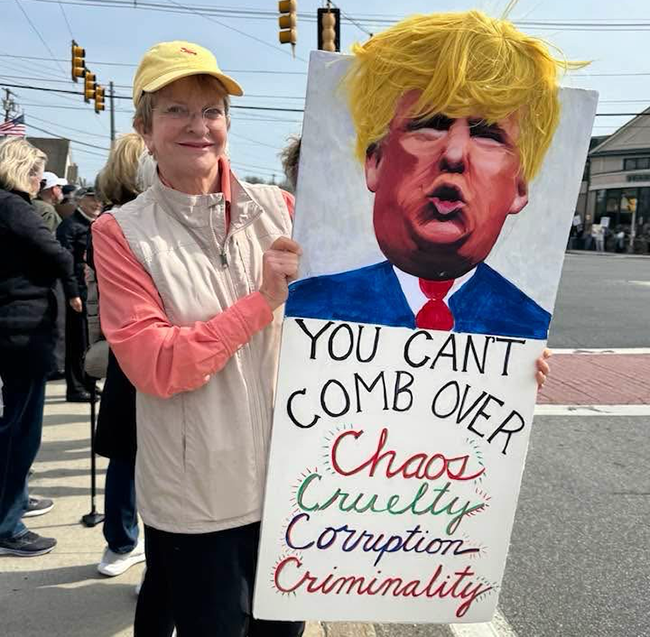 YOU CAN'T
COMB OVER
Chaos
Cruelty
Corruption
Criminality